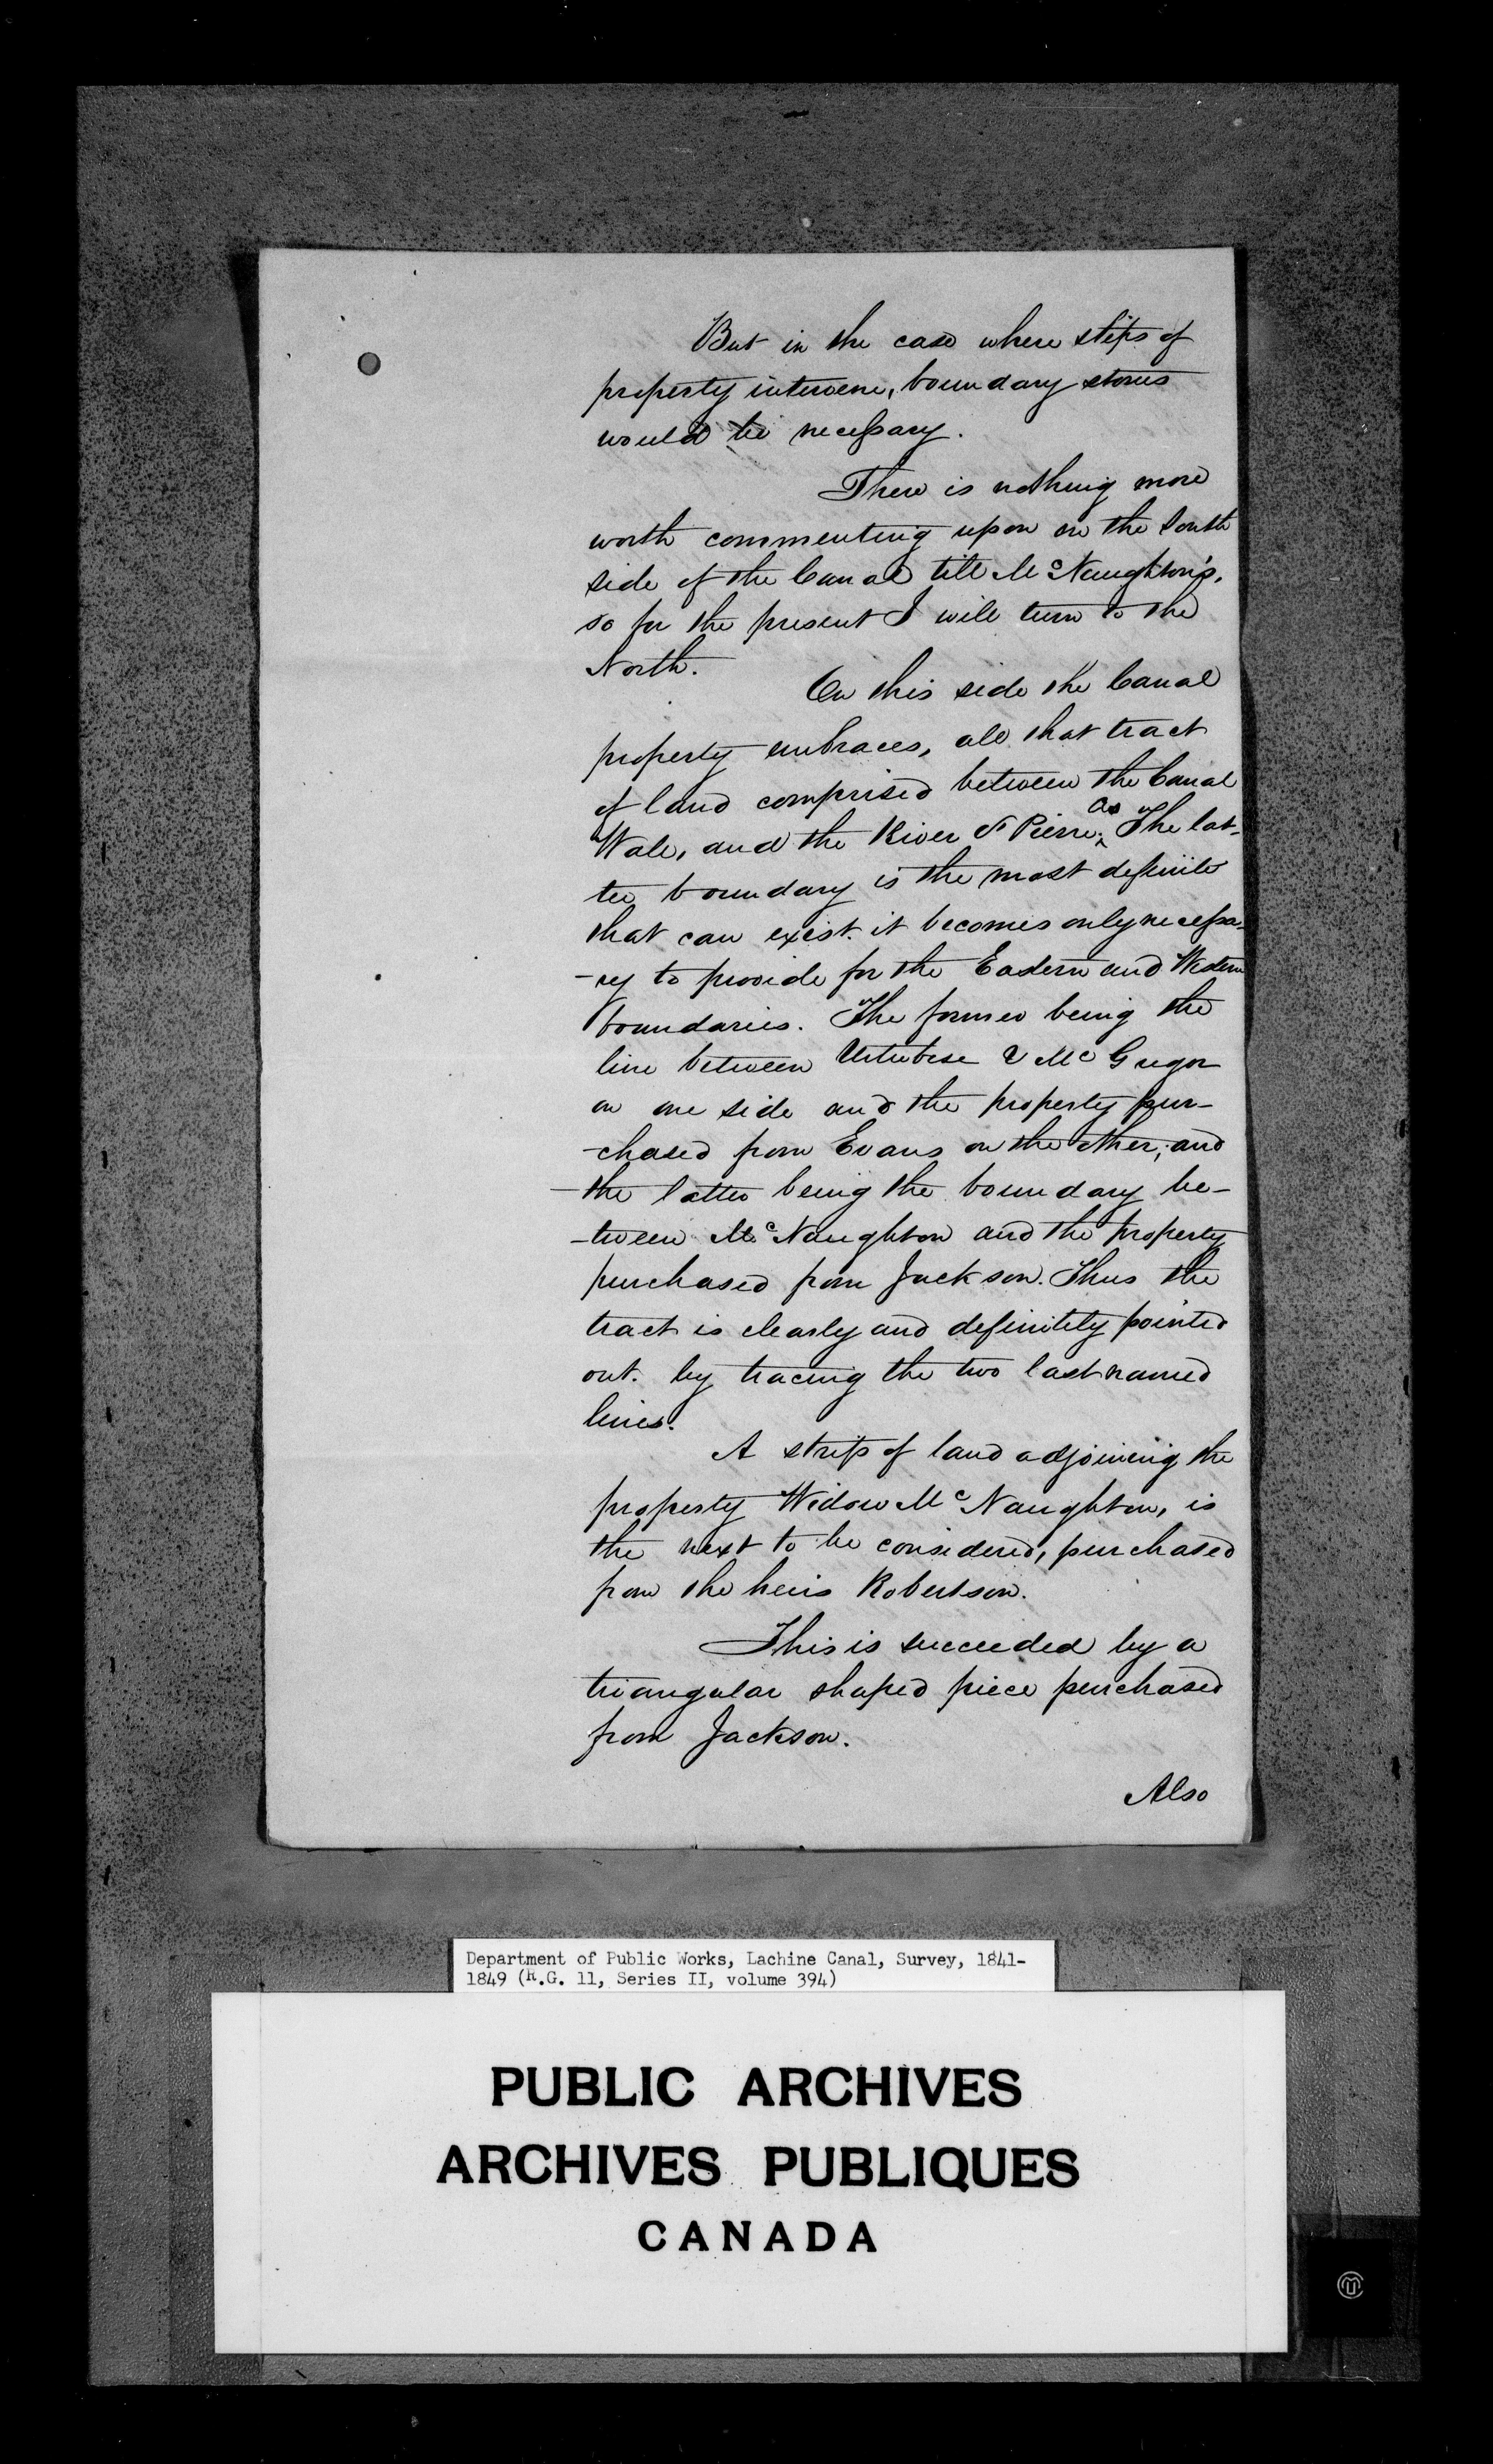 But in the case where stips of
property intervene, boundary stones
would be necessary.
There is nothing more
worth commenting upon on the South
side of the Canal till McNaughton's,
so for the present I will turn to the
North.
On this side the Canal
property embraces, all that tract
of land comprised between the Canal
Wall, and the River St Pierre. As The lat-
ter boundary is the most definite
that can exist. it becomes only necessa-
-ry to provide for the Eastern and Western
boundaries. The former being the
line between Urtubese & McGregor
on one side and the property pur-
-chased from Evans on the other; and
the latter being the boundary be-
-tween McNaughton and the property
purchased from Jackson. Thus the
tract is clearly and definitely pointed
out. by tracing the two last named
lines.
A strip of land adjoining the
property Widow McNaughton, is
the next to be considered, purchased
from the heirs Robertson.
This is succeeded by a
triangular shaped piece purchased
from Jackson.
Also
Department of Public Works, Lachine Canal, Survey, 1841-
1849 (R.G. 11, Series II, volume 394)
PUBLIC ARCHIVES
ARCHIVES PUBLIQUES
CANADA